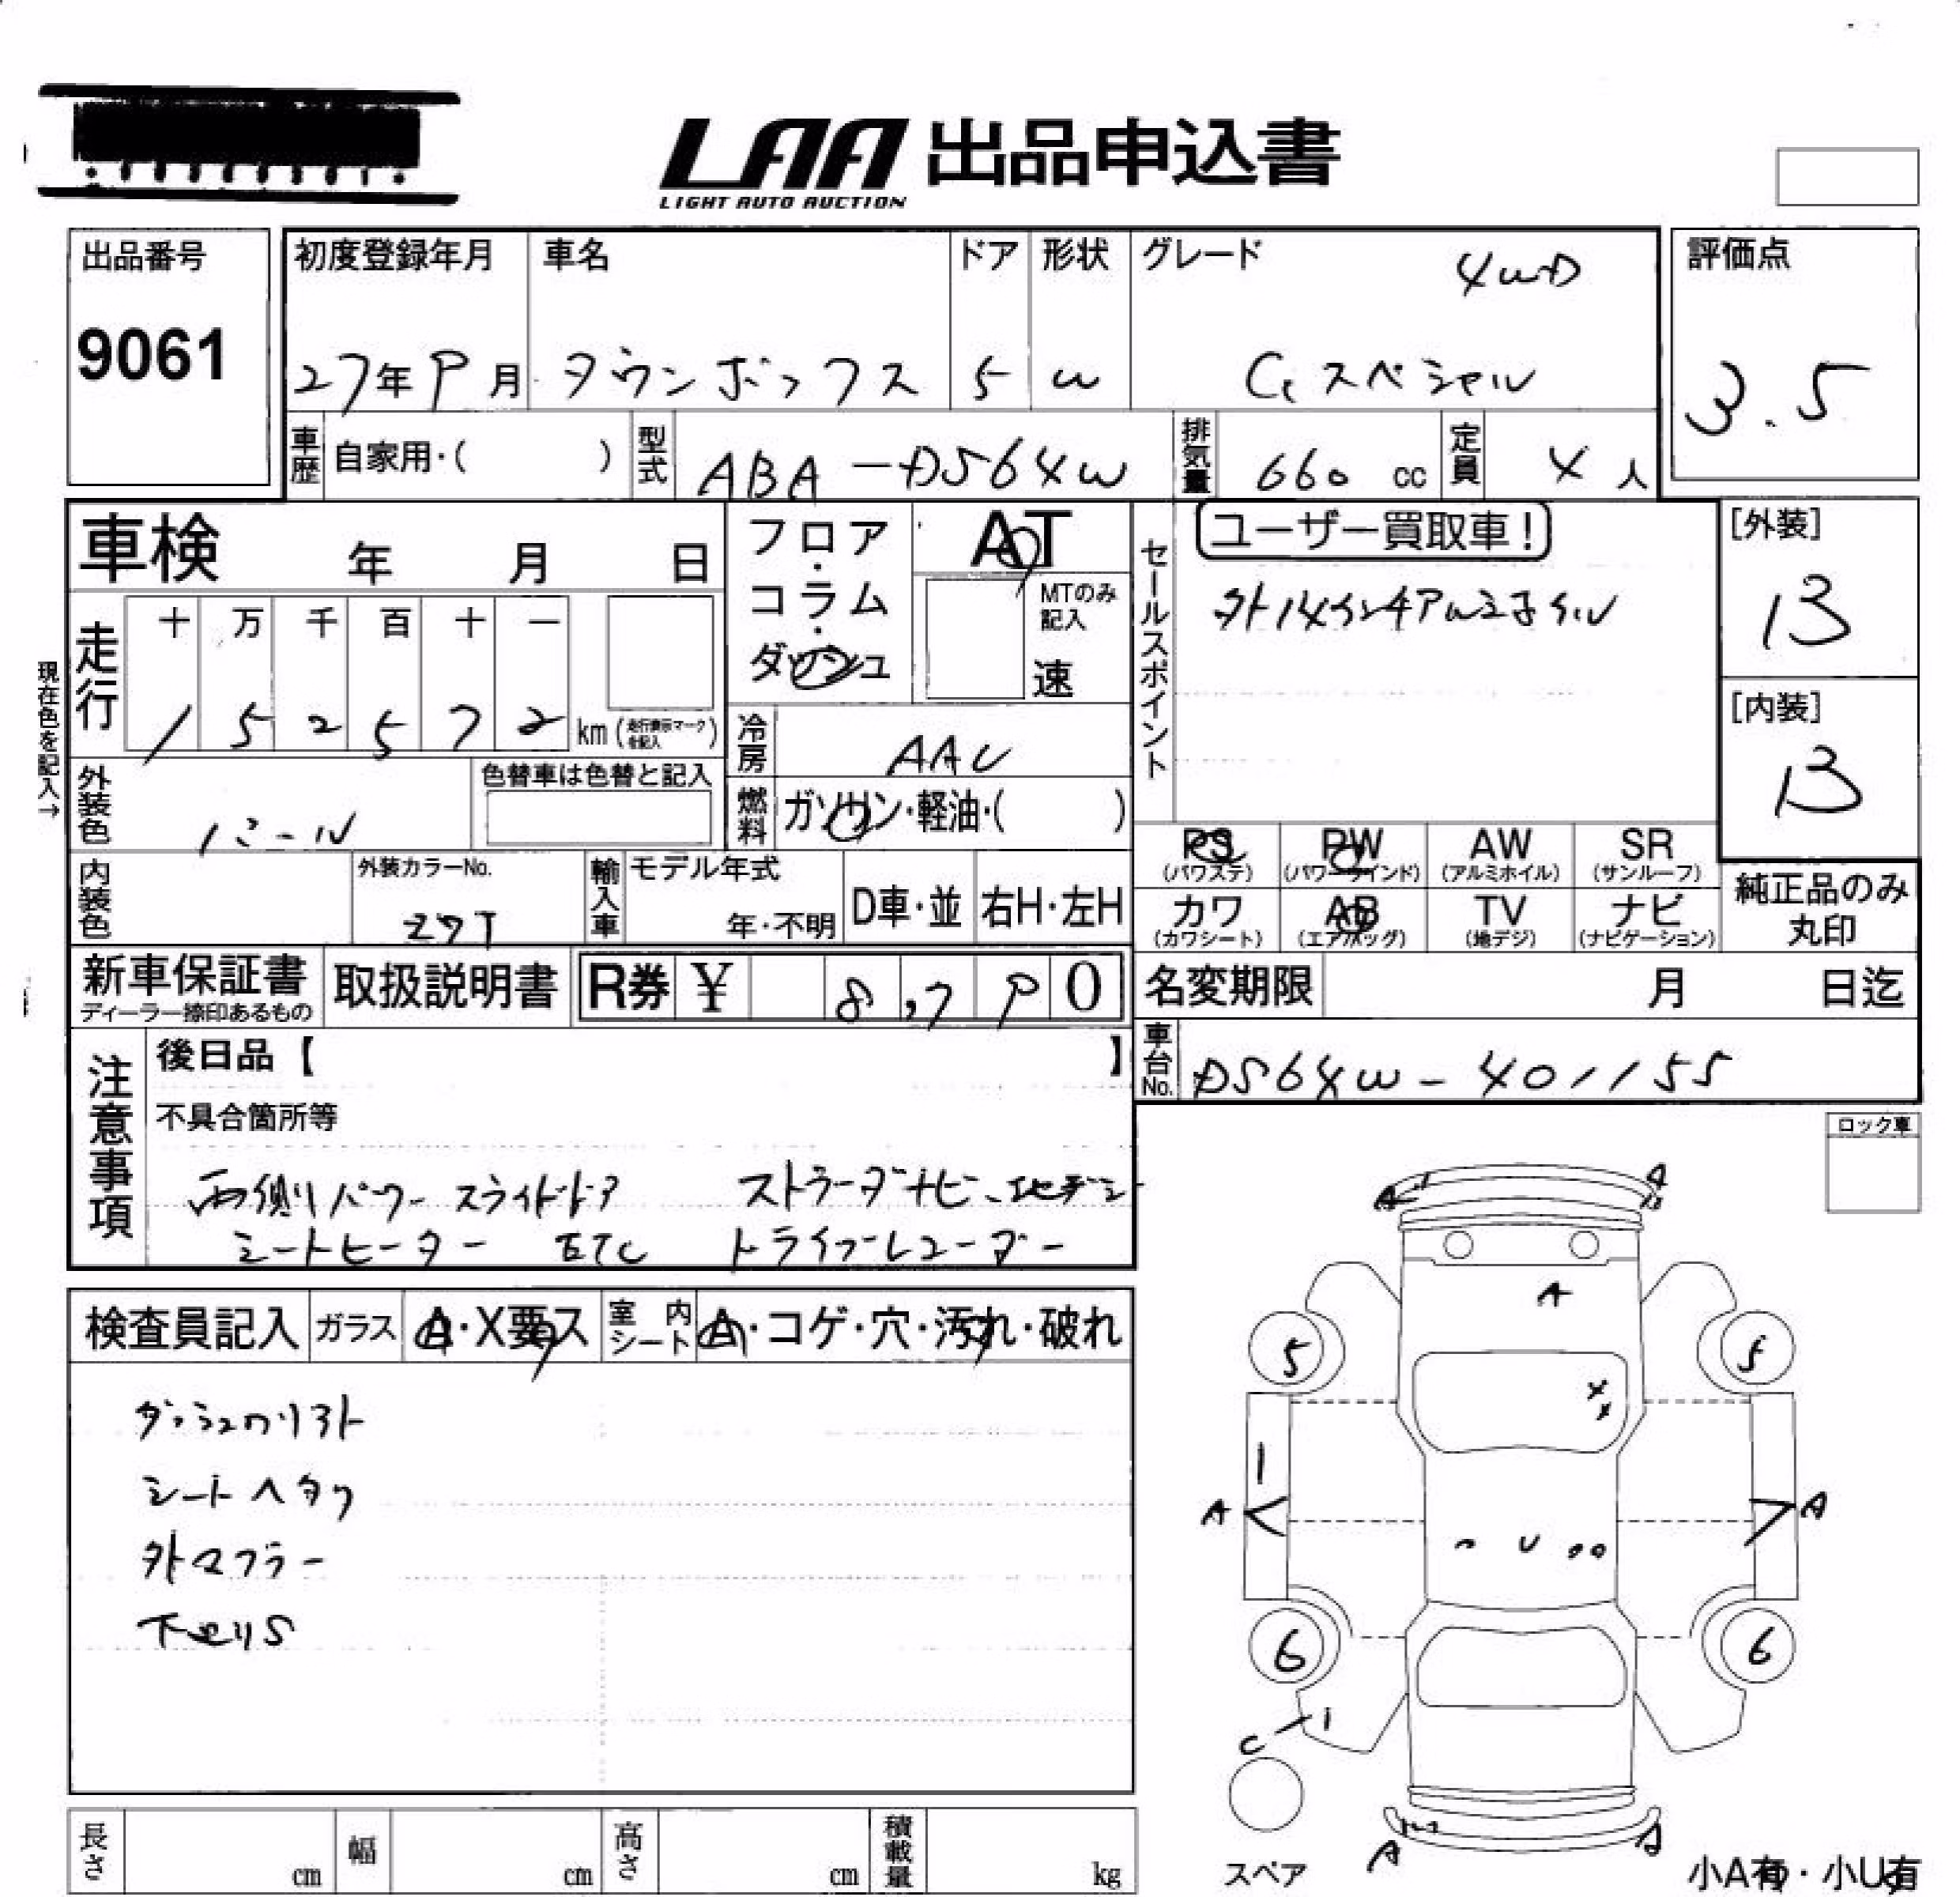 LAA 出品申込書
LIGHT AUTO AUCTION
出品番号
9061
初度登録年月 車名 ドア 形状 グレード 4WD
27年9月 タウンボックス 5 W Gスペシャル
評価点
3.5
車歴 自家用・( ) 型式 ABA-DS64W 排気量 660 cc 定員 4人
車検 年 月 日
フロア・コラム・ダッシュ
AT
MTのみ記入
速
セールスポイント
ユーザー買取車!
外14インチアルミホイル
[外装]
B
[内装]
B
現在色を記入→
走行 十 万 千 百 十 一
1 5 2 5 7 2 km (走行表示マークを記入)
冷房 AAC
外装色 パール
色替車は色替と記入
燃料 ガソリン・軽油・( )
内装色
外装カラーNo.
Z7T
輸入車 モデル年式
年・不明 D車・並 右H・左H
PS (パワステ) PW (パワーウインド) AW (アルミホイル) SR (サンルーフ)
カワ (カワシート) AB (エアバッグ) TV (地デジ) ナビ (ナビゲーション)
純正品のみ丸印
新車保証書
ディーラー捺印あるもの
取扱説明書 R券 ¥ 8,790
名変期限 月 日迄
車台No. DS64W-401155
注意事項
後日品【 】
不具合箇所等
両側パワースライドドア ストラーダナビ、地デジ
シートヒーター ETC ドライブレコーダー
ロック車
検査員記入 ガラス A・X要ス 室内シート A・コゲ・穴・汚れ・破れ
ダッシュのリフト
シートヘタリ
外マフラー
下廻りS
A A
A
5 5
X X
1
A A
U
6 6
C
A A
スペア
小A有・小U有
長さ cm 幅 cm 高さ cm 積載量 kg